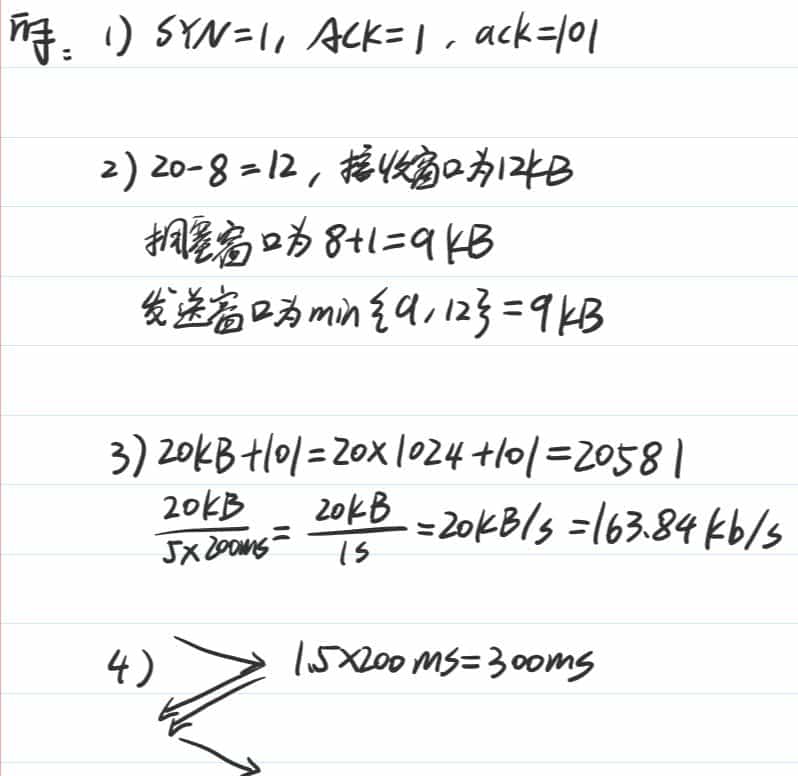 解：1) SYN=1, ACK=1, ack=101
2) 20-8=12, 接收窗口为12kB
拥塞窗口为 8+1=9kB
发送窗口为min{9,12}=9kB
3) 20kB+101=20×1024+101=20581
20kB/5×200ms = 20kB/1s =20kB/s =163.84kb/s
4) 1.5×200ms=300ms